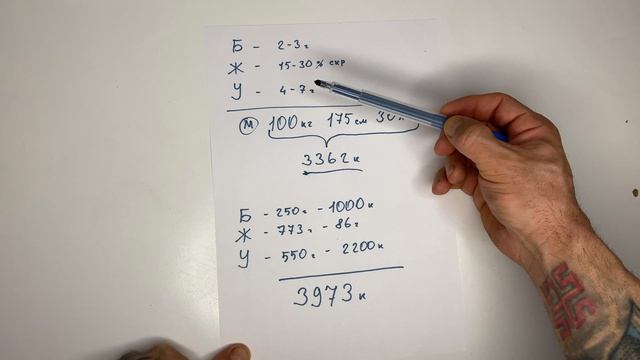 Б - 2-3г
Ж - 15-30% скр
У - 4-7г
М 100кг 175см 30
3362к
Б - 250г - 1000к
Ж - 773г - 86г
У - 550г - 2200к
3973к